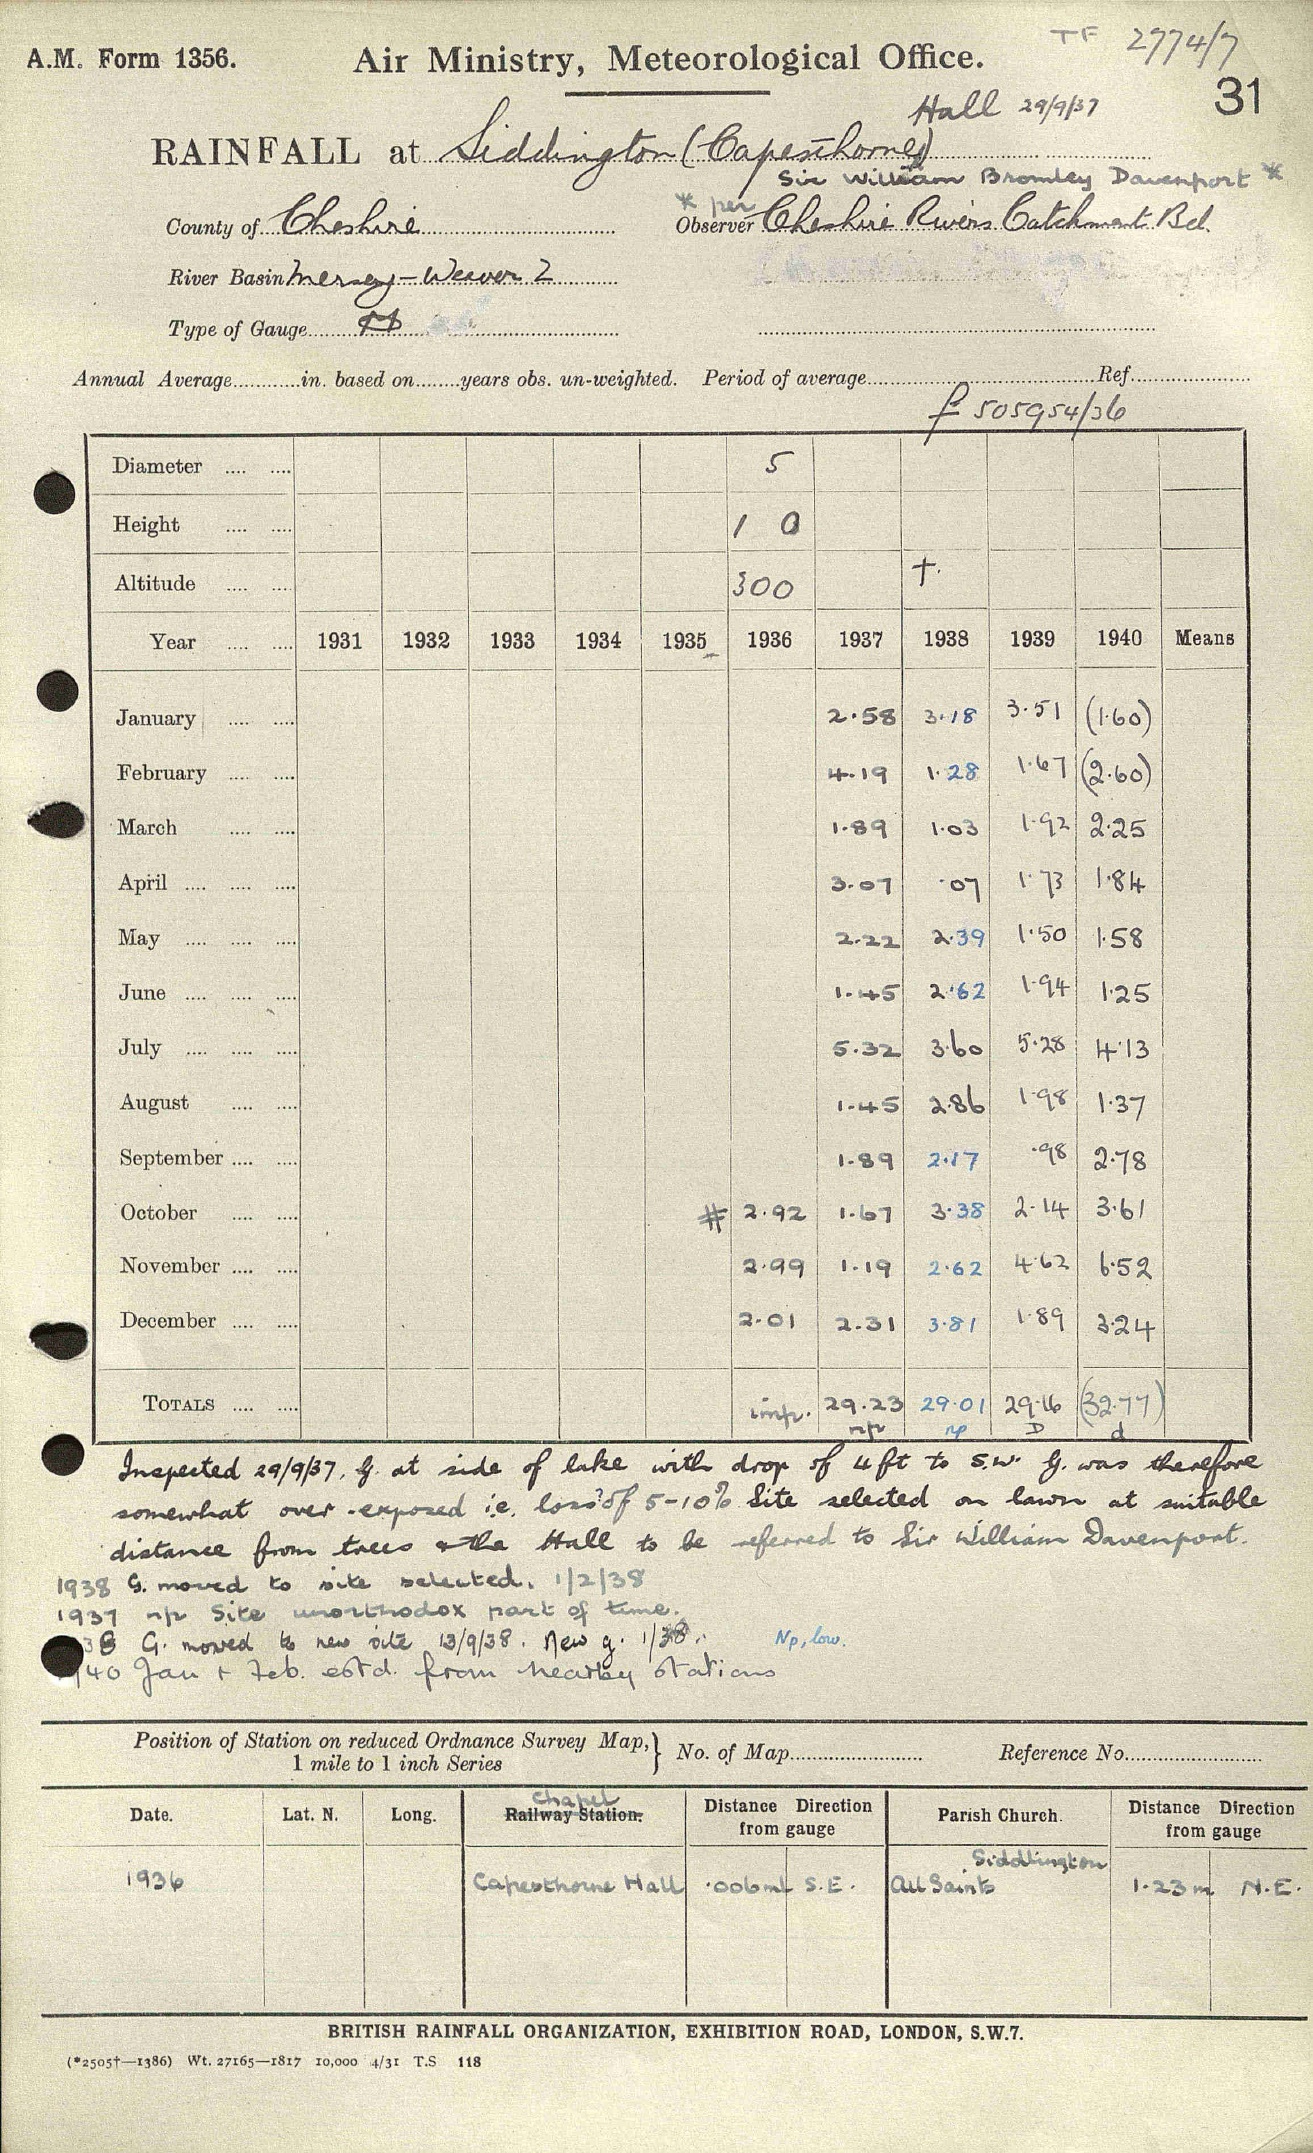 TF 2774/7
A.M. Form 1356. Air Ministry, Meteorological Office.
31
Hall 29/9/37
RAINFALL at Siddington (Capesthorne)
Sir William Bromley Davenport *
* per
County of Cheshire Observer Cheshire Rivers Catchment Bd.
River Basin Mersey-Weaver 2
Type of Gauge M
Annual Average in. based on years obs. un-weighted. Period of average Ref.
f 505954/36
Diameter 5
Height 1 0
Altitude 300 †
Year 1931 1932 1933 1934 1935 1936 1937 1938 1939 1940 Means
January 2.58 3.18 3.51 (1.60)
February 4.19 1.28 1.67 (2.60)
March 1.89 1.03 1.92 2.25
April 3.07 .07 1.73 1.84
May 2.22 2.39 1.50 1.58
June 1.45 2.62 1.94 1.25
July 5.32 3.60 5.28 4.13
August 1.45 2.86 1.98 1.37
September 1.89 2.17 .98 2.78
October # 2.92 1.67 3.38 2.14 3.61
November 2.99 1.19 2.62 4.62 6.52
December 2.01 2.31 3.81 1.89 3.24
TOTALS imp. 29.23 29.01 29.16 (32.77)
np np D d
Inspected 29/9/37. G. at side of lake with drop of 4 ft to S.W. G. was therefore
somewhat over-exposed i.e. loss? of 5-10% Site selected on lawn at suitable
distance from trees & the Hall to be referred to Sir William Davenport.
1938 G. moved to site selected. 1/2/38
1937 np Site unorthodox part of time.
38 G. moved to new site 13/9/38. New g. 1/38. Np, low.
1940 Jan + Feb. estd. from nearby stations
Position of Station on reduced Ordnance Survey Map, 1 mile to 1 inch Series } No. of Map Reference No.
Chapel
Date. Lat. N. Long. Railway Station. Distance Direction from gauge Parish Church. Distance Direction from gauge
Siddington
1936 Capesthorne Hall .006ml S.E. All Saints 1.23m N.E.
BRITISH RAINFALL ORGANIZATION, EXHIBITION ROAD, LONDON, S.W.7.
(*2505†—1386) Wt. 27165—1817 10,000 4/31 T.S 118